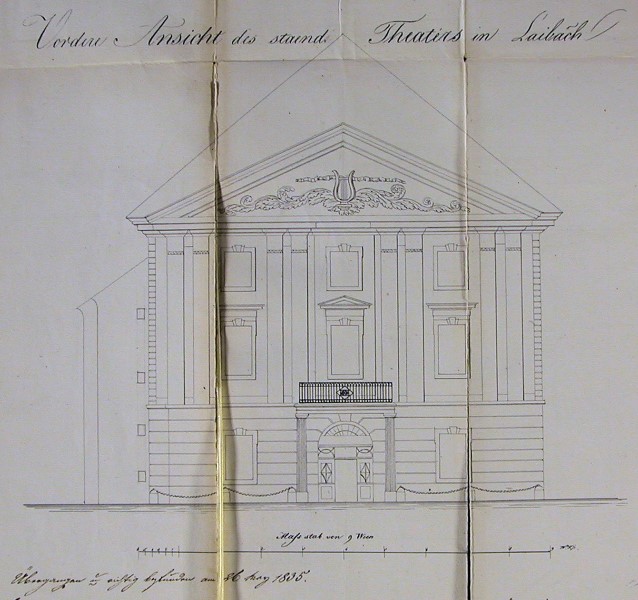 Vordere Ansicht des staend. Theaters in Laibach
Mass stab von 9 Wien
richtig befunden am 26 May 1835.